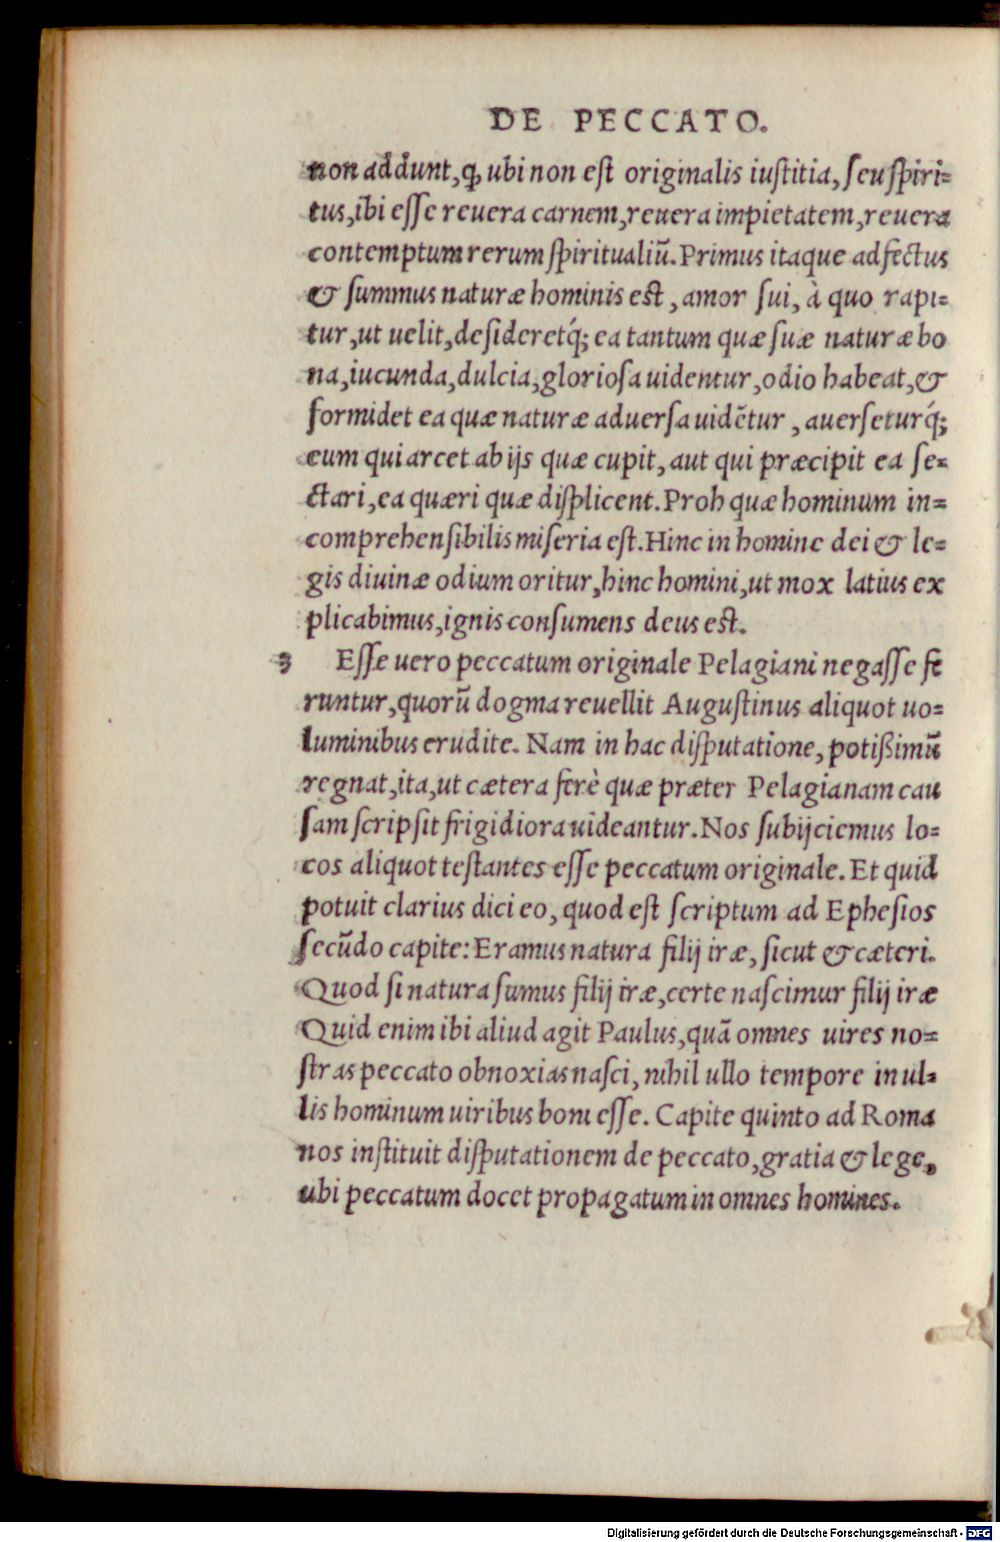 DE PECCATO.
non addunt, ꝙ ubi non est originalis iustitia, seu spiri=
tus, ibi esse reuera carnem, reuera impietatem, reuera
contemptum rerum spiritualiũ. Primus itaque adfectus
& summus naturæ hominis est, amor sui, à quo rapi=
tur, ut uelit, desideretq́; ea tantum quæ suæ naturæ bo
na, iucunda, dulcia, gloriosa uidentur, odio habeat, &
formidet ea quæ naturæ aduersa uidẽtur, auerseturq́;
eum qui arcet ab ijs quæ cupit, aut qui præcipit ea se=
ctari, ea quæri quæ displicent. Proh quæ hominum in=
comprehensibilis miseria est. Hinc in homine dei & le=
gis diuinæ odium oritur, hinc homini, ut mox latius ex
plicabimus, ignis consumens deus est.
3 Esse uero peccatum originale Pelagiani negasse fe
runtur, quorũ dogma reuellit Augustinus aliquot uo=
luminibus erudite. Nam in hac disputatione, potißimũ
regnat, ita, ut cætera ferè quæ præter Pelagianam cau
sam scripsit frigidiora uideantur. Nos subijciemus lo=
cos aliquot testantes esse peccatum originale. Et quid
potuit clarius dici eo, quod est scriptum ad Ephesios
secũdo capite: Eramus natura filij iræ, sicut & cæteri.
Quod si natura sumus filij iræ, certe nascimur filij iræ
Quid enim ibi aliud agit Paulus, quã omnes uires no=
stras peccato obnoxias nasci, nihil ullo tempore in ul=
lis hominum uiribus boni esse. Capite quinto ad Roma
nos instituit disputationem de peccato, gratia & lege,
ubi peccatum docet propagatum in omnes homines.
Digitalisierung gefördert durch die Deutsche Forschungsgemeinschaft - DFG